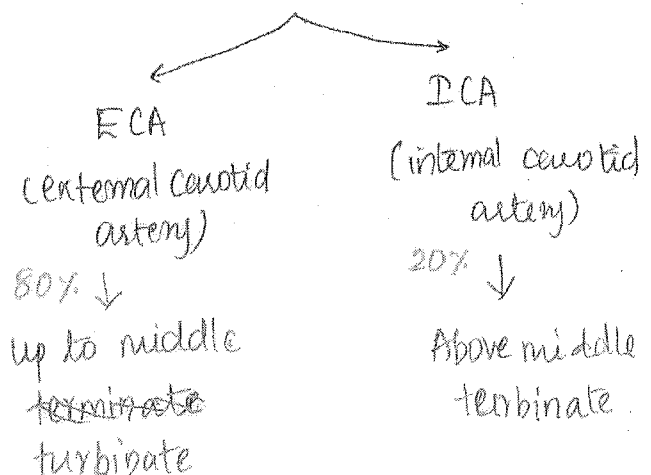 ECA
(external carotid
artery)
80%
up to middle
terminate
turbinate
ICA
(internal carotid
artery)
20%
Above middle
terbinate